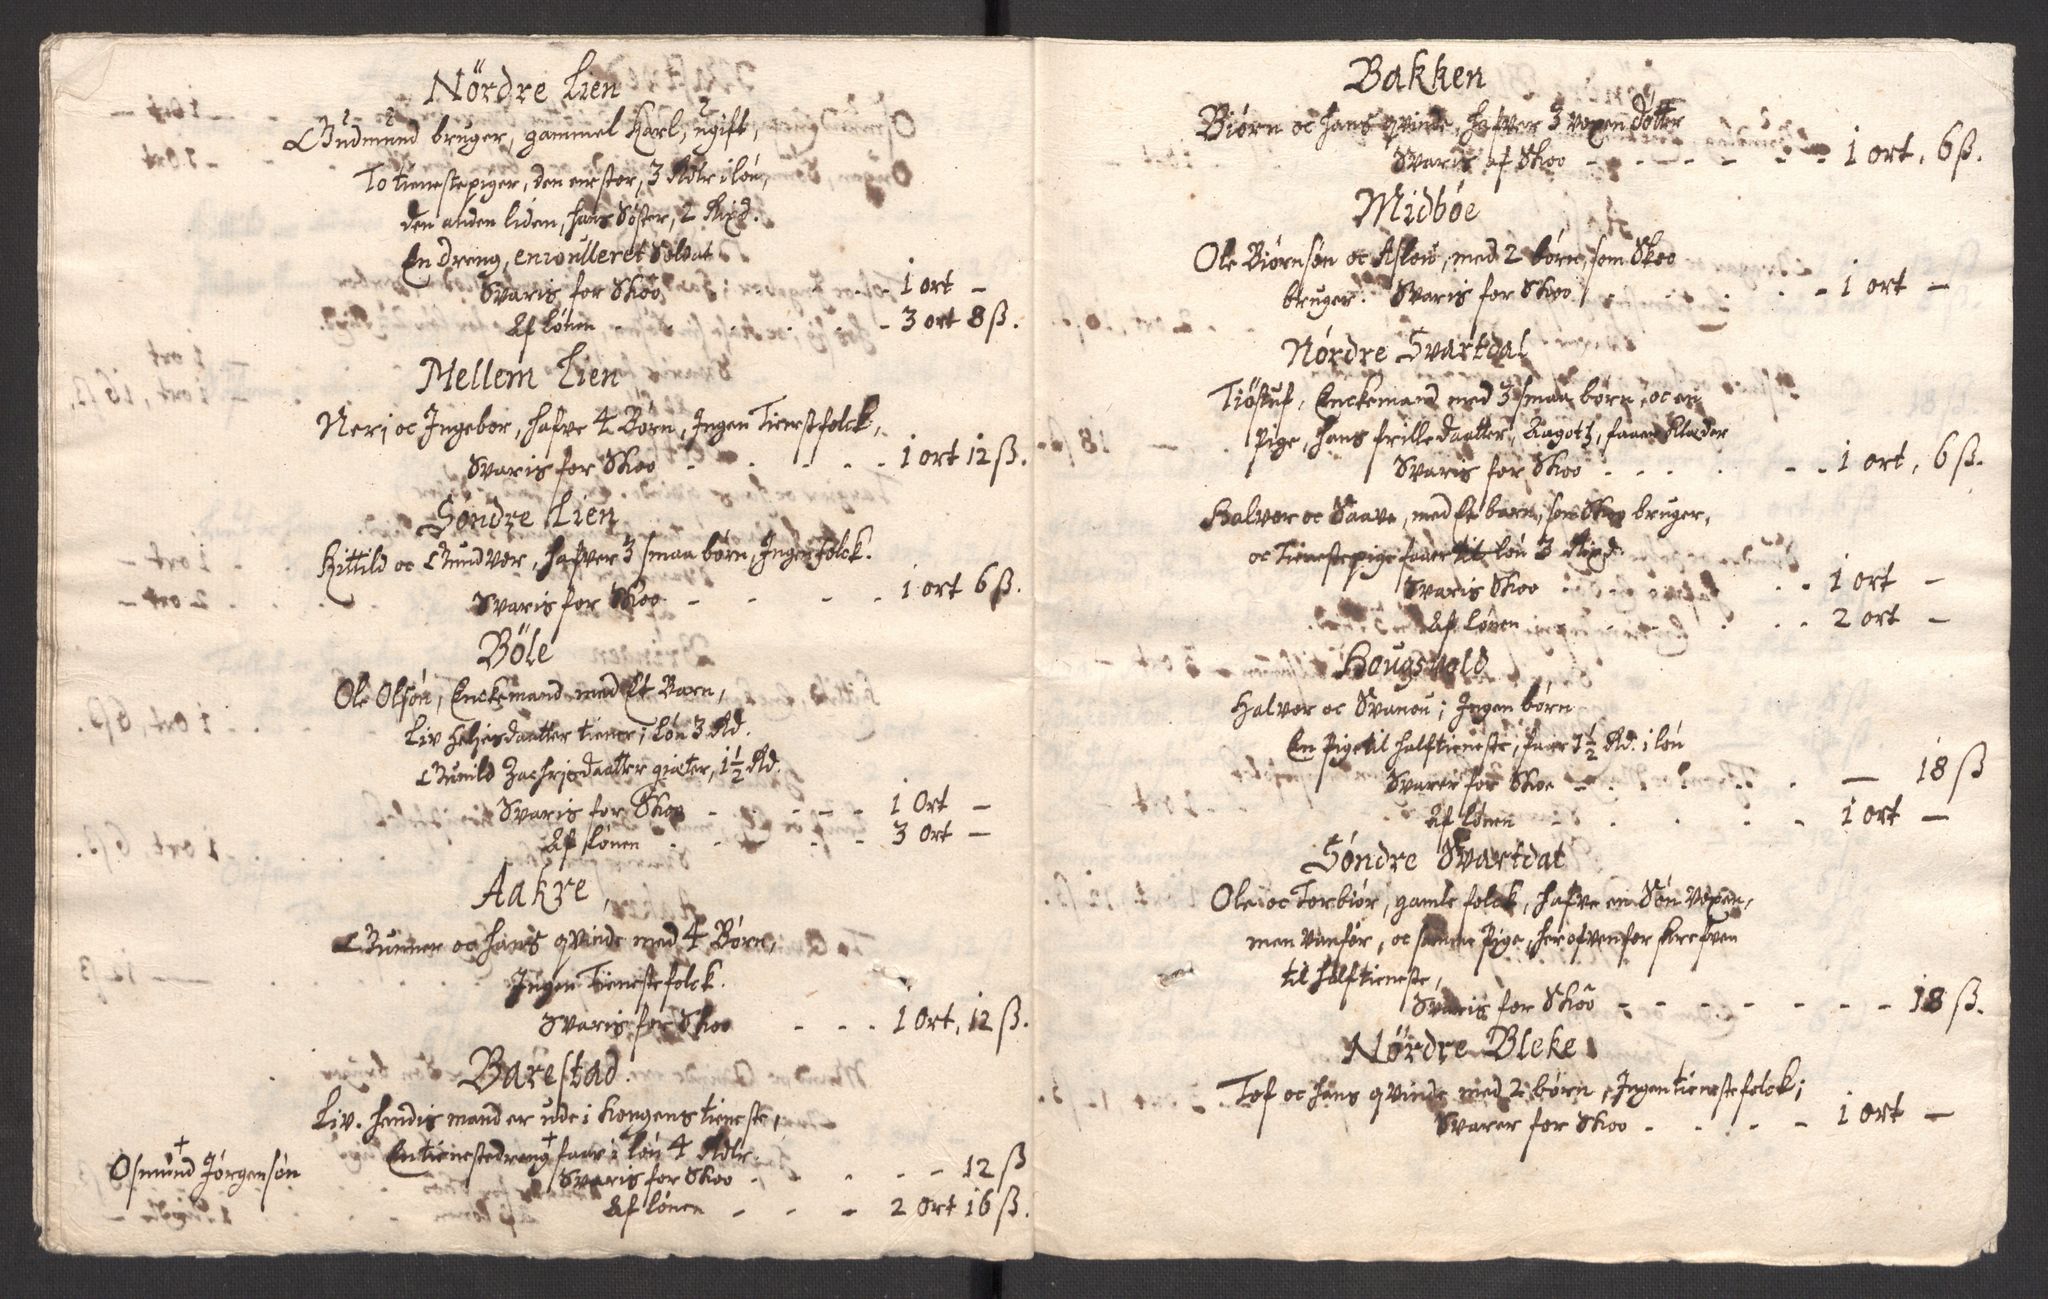 Nördre Lien
Gudmund bruger, gammel Karl, ugift,
To tienestepiger, den ene stor, 3 Rdlr i løn,
den anden liden, hans Søster, 2 Rixd.
En dreng, enroulleret Soldat
Svaris for Skoo - - - - 1 ort -
Af lønen - - - - 3 ort 8 ß.
Mellem Lien
Neri oc Ingebor, hafve 4 Børn, Ingen Tienestfolck,
Svaris for Skoo - - - - 1 ort 12 ß.
Söndre Lien
Kittild oc Gundvor, hafver 3 smaa børn, Ingen folck.
Svaris for Skoo - - - - 1 ort 6 ß.
Böle
Ole Olsøn, Enckemand med Et Barn,
Liv daatter tiener, løn 3 Rd.
Gunild Zachrisdaatter giæter, 1½ Rd.
Svaris for Skoo - - - - 1 Ort -
Af lønen - - - - 3 Ort -
Aakre,
Gunner oc hans qvinde med 4 Børn,
Ingen Tienestefolck.
Svaris for Skoo - - - 1 Ort, 12 ß.
Barestad.
Liv. hendis mand er ude i Kongens tieneste,
En tienestedreng + faar i løn 4 Rdlr.
+
Osmund Jørgensøn
Svaris for Skoo - - - - 12 ß
Af lønen - - - 2 Ort 16 ß.
Bakken
Biørn oc hans qvinde, hafver 3 voxen døtter
Svaris af Skoo - - - - - 1 ort, 6 ß.
Midböe
Ole Biørnsøn oc Aslou, med 2 børn, som Skoo
bruger. Svaris for Skoo - - - - 1 ort -
Nórdre Svartdal
Tiöstuf, Enckemand med 3 smaa børn, oc en
Pige, hans frille daatter, Ragoth, faaer Klæder
Svaris for Skoo - - - - 1 ort, 6 ß.
Halvor oc Saave, med Et barn, som Skoo bruger,
oc Tienestepige faaer til løn 3 Rixd.
Svaris Skoo - - - - 1 ort -
Af Lønen - - - - 2 ort -
Hougsvold
Halvor oc Svanou; Ingen børn
En Pige til halftieneste, faar 1½ Rd. i løn
Svarer for Skoe - - - - 18 ß
Af lønen - - - - 1 ort -
Söndre Svartdal
Ole oc Torbiør, gamle folck, hafve en Søn voxen,
men vanför, oc samme Pige, her ofvenfor skrefven
til halftieneste,
Svaris for Skoo - - - - - - - 18 ß.
Nørdre Bleke
Tof oc hans qvinde med 2 børn, Ingen tienestefolck;
Svarer for Skoo - - - - 1 ort -